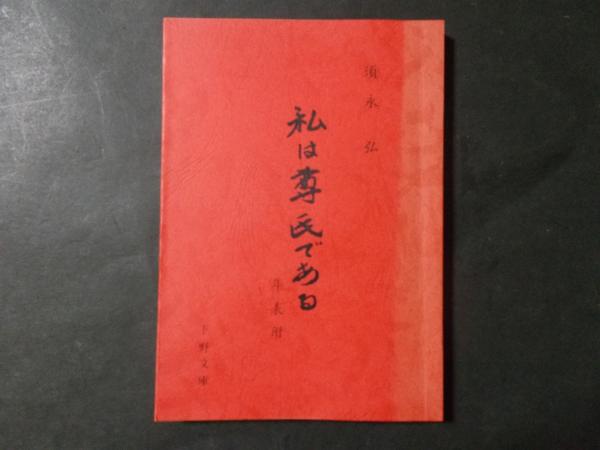 須永 弘
私は尊氏である
年表附
下野文庫